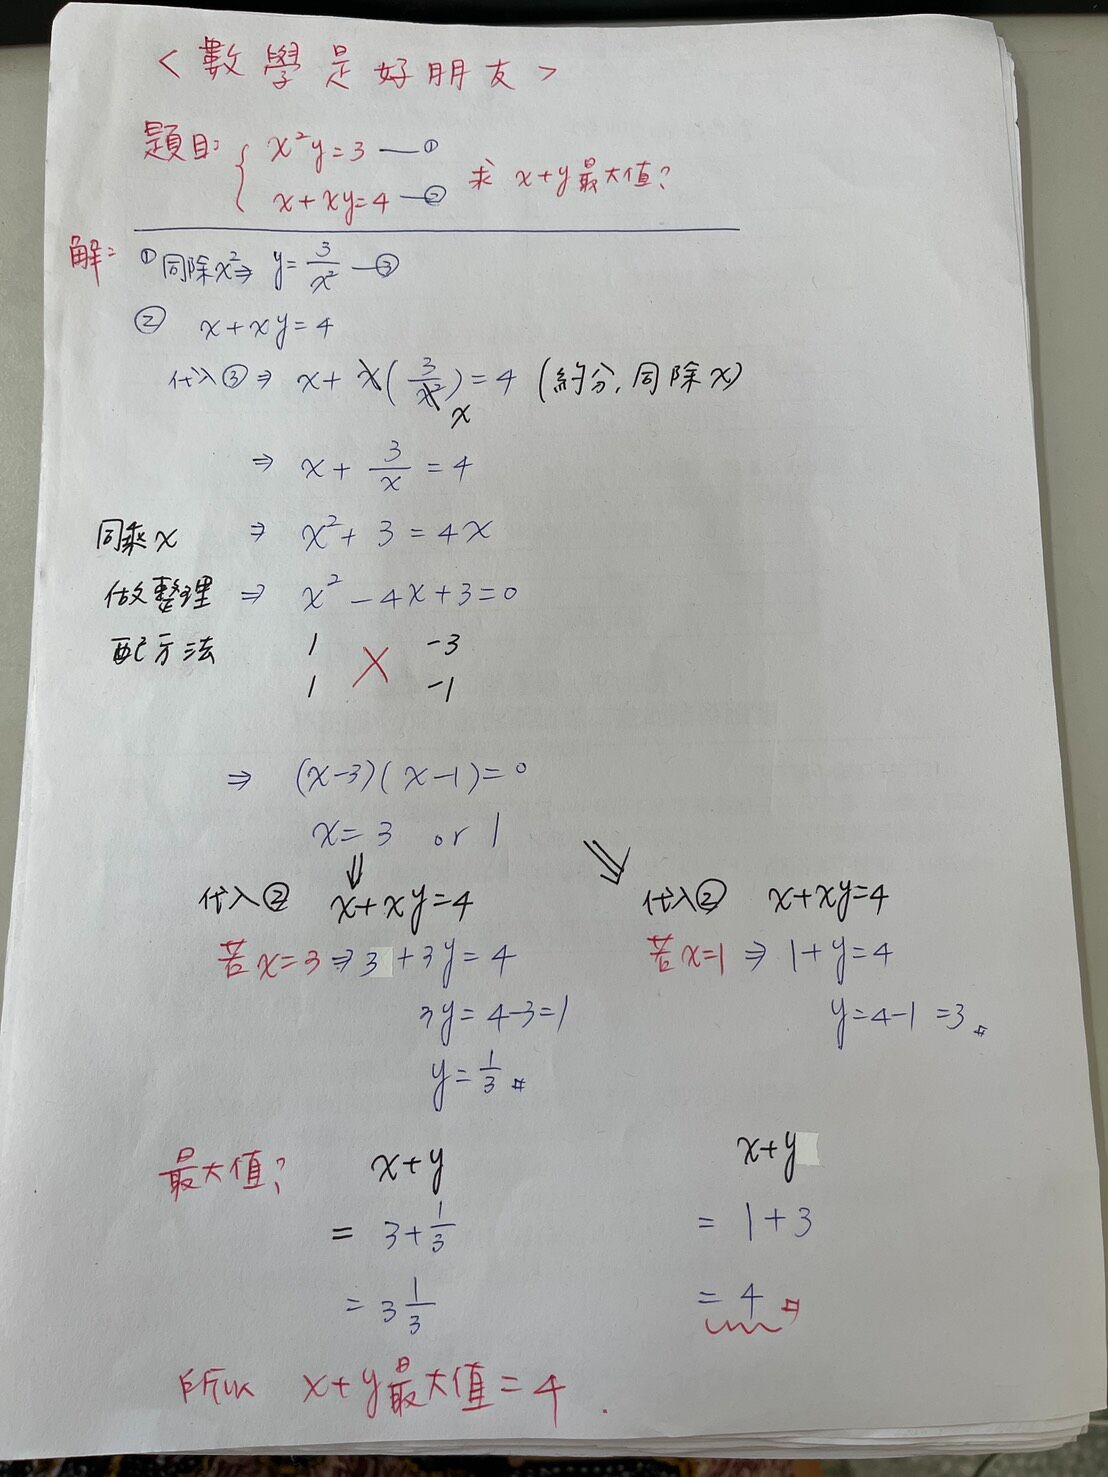 <數學是好朋友>
題目: { x²y=3 —①
x+xy=4 —② 求 x+y最大值?
解: ①同除x²⇒ y=3/x² —③
② x+xy=4
代入③⇒ x+x(3/x²)=4 (約分,同除x)
x
⇒ x+3/x=4
同乘x ⇒ x²+3=4x
做整理 ⇒ x²-4x+3=0
配方法 1 -3
1 ╳ -1
⇒ (x-3)(x-1)=0
x=3 or 1
⇓ ⇘
代入② x+xy=4 代入② x+xy=4
若x=3⇒3+3y=4 若x=1⇒1+y=4
3y=4-3=1 y=4-1=3 #
y=1/3 #
最大值? x+y x+y
=3+1/3 =1+3
=3 1/3 =4 #
所以 x+y最大值=4.